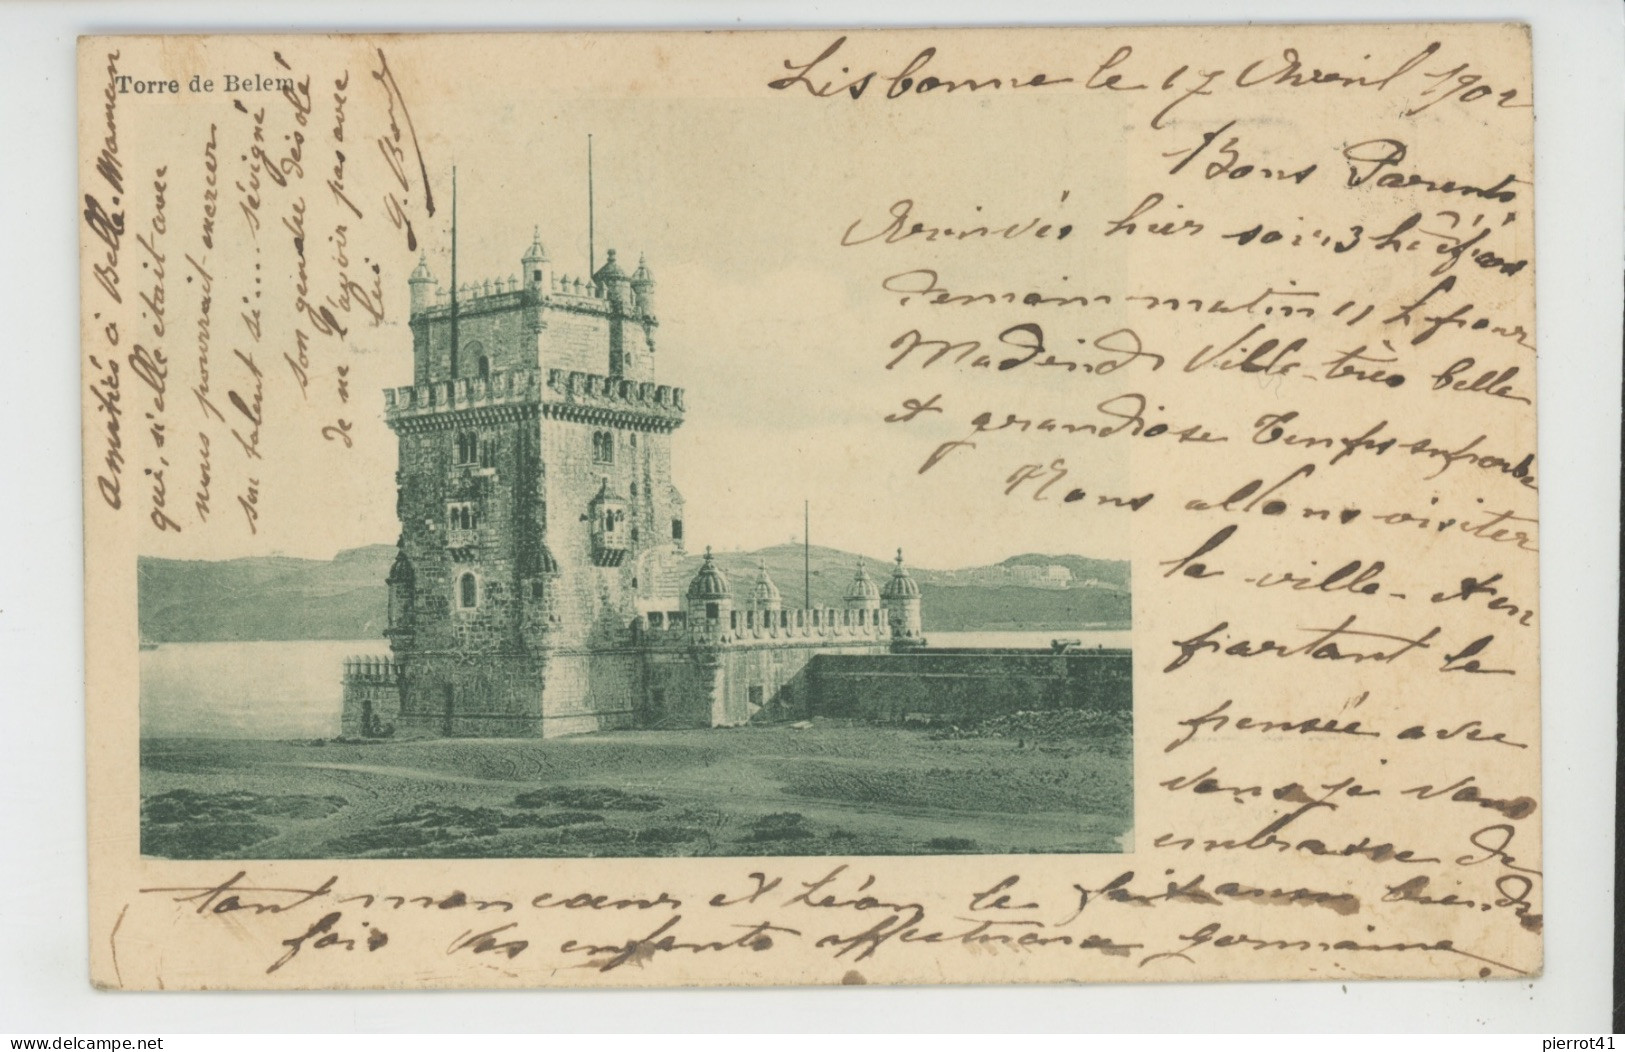 Torre de Belem
Lisbonne le 17 Avril 1902
Bons Parents
Arrivés hier soir 3 h
Demain matin 11 h pour
Madrid Ville très belle
et grandiose Temps superbe
Nous allons visiter
la ville - et en
partant la
pensée avec
vous je vous
embrasse de
tout mon cœur et Léon le fait aussi bien des
fois Vos enfants affectueux Germaine
Amitiés à Belle-Maman
qui, si elle était avec
nous pourrait exercer
son talent si... sévigné
son gendre désolé
de ne l'avoir pas avec
lui
delcampe.net
pierrot41